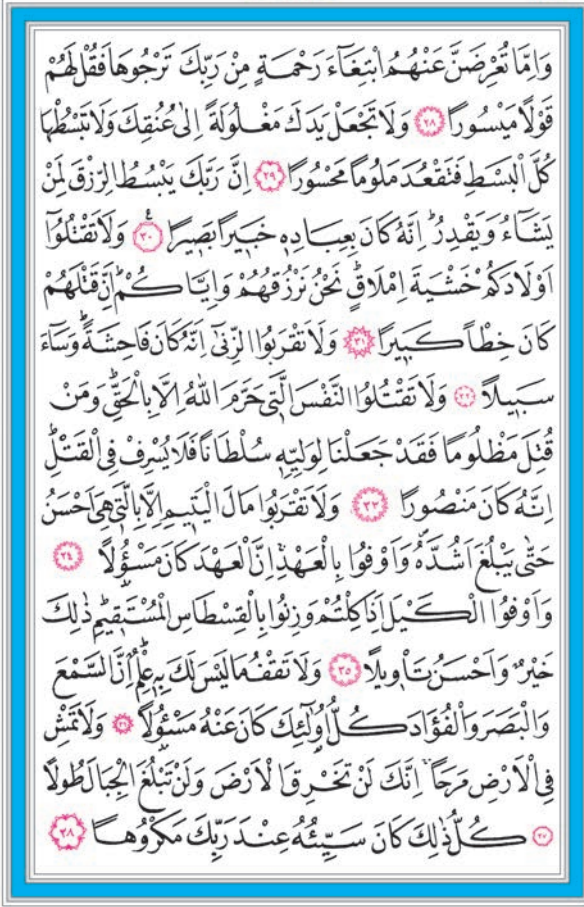 وَاِمَّا تُعْرِضَنَّ عَنْهُمُ ابْتِغَٓاءَ رَحْمَةٍ مِنْ رَبِّكَ تَرْجُوهَا فَقُلْ لَهُمْ
قَوْلًا مَيْسُورًا ﴿٢٨﴾ وَلَا تَجْعَلْ يَدَكَ مَغْلُولَةً اِلٰى عُنُقِكَ وَلَا تَبْسُطْهَا
كُلَّ الْبَسْطِ فَتَقْعُدَ مَلُومًا مَحْسُورًا ﴿٢٩﴾ اِنَّ رَبَّكَ يَبْسُطُ الرِّزْقَ لِمَنْ
يَشَٓاءُ وَيَقْدِرُ ۜ اِنَّهُ كَانَ بِعِبَادِهٖ خَبٖيرًا بَصٖيرًا ﴿٣٠﴾ وَلَا تَقْتُلُٓوا
اَوْلَادَكُمْ خَشْيَةَ اِمْلَاقٍ ۜ نَحْنُ نَرْزُقُهُمْ وَاِيَّاكُمْ ۜ اِنَّ قَتْلَهُمْ
كَانَ خِطْـًٔا كَبٖيرًا ﴿٣١﴾ وَلَا تَقْرَبُوا الزِّنٰٓى اِنَّهُ كَانَ فَاحِشَةً ۜ وَسَٓاءَ
سَبٖيلًا ﴿٣٢﴾ وَلَا تَقْتُلُوا النَّفْسَ الَّتٖى حَرَّمَ اللّٰهُ اِلَّا بِالْحَقِّ ۜ وَمَنْ
قُتِلَ مَظْلُومًا فَقَدْ جَعَلْنَا لِوَلِيِّهٖ سُلْطَانًا فَلَا يُسْرِفْ فِى الْقَتْلِ ۜ
اِنَّهُ كَانَ مَنْصُورًا ﴿٣٣﴾ وَلَا تَقْرَبُوا مَالَ الْيَتٖيمِ اِلَّا بِالَّتٖى هِىَ اَحْسَنُ
حَتّٰى يَبْلُغَ اَشُدَّهُ ۖ وَاَوْفُوا بِالْعَهْدِ ۚ اِنَّ الْعَهْدَ كَانَ مَسْؤُ۫لًا ﴿٣٤﴾
وَاَوْفُوا الْكَيْلَ اِذَا كِلْتُمْ وَزِنُوا بِالْقِسْطَاسِ الْمُسْتَقٖيمِ ۜ ذٰلِكَ
خَيْرٌ وَاَحْسَنُ تَاْوٖيلًا ﴿٣٥﴾ وَلَا تَقْفُ مَا لَيْسَ لَكَ بِهٖ عِلْمٌ ۜ اِنَّ السَّمْعَ
وَالْبَصَرَ وَالْفُؤَادَ كُلُّ اُو۬لٰٓئِكَ كَانَ عَنْهُ مَسْؤُ۫لًا ﴿٣٦﴾ وَلَا تَمْشِ
فِى الْاَرْضِ مَرَحًا ۚ اِنَّكَ لَنْ تَخْرِقَ الْاَرْضَ وَلَنْ تَبْلُغَ الْجِبَالَ طُولًا
﴿٣٧﴾ كُلُّ ذٰلِكَ كَانَ سَيِّئُهُ عِنْدَ رَبِّكَ مَكْرُوهًا ﴿٣٨﴾